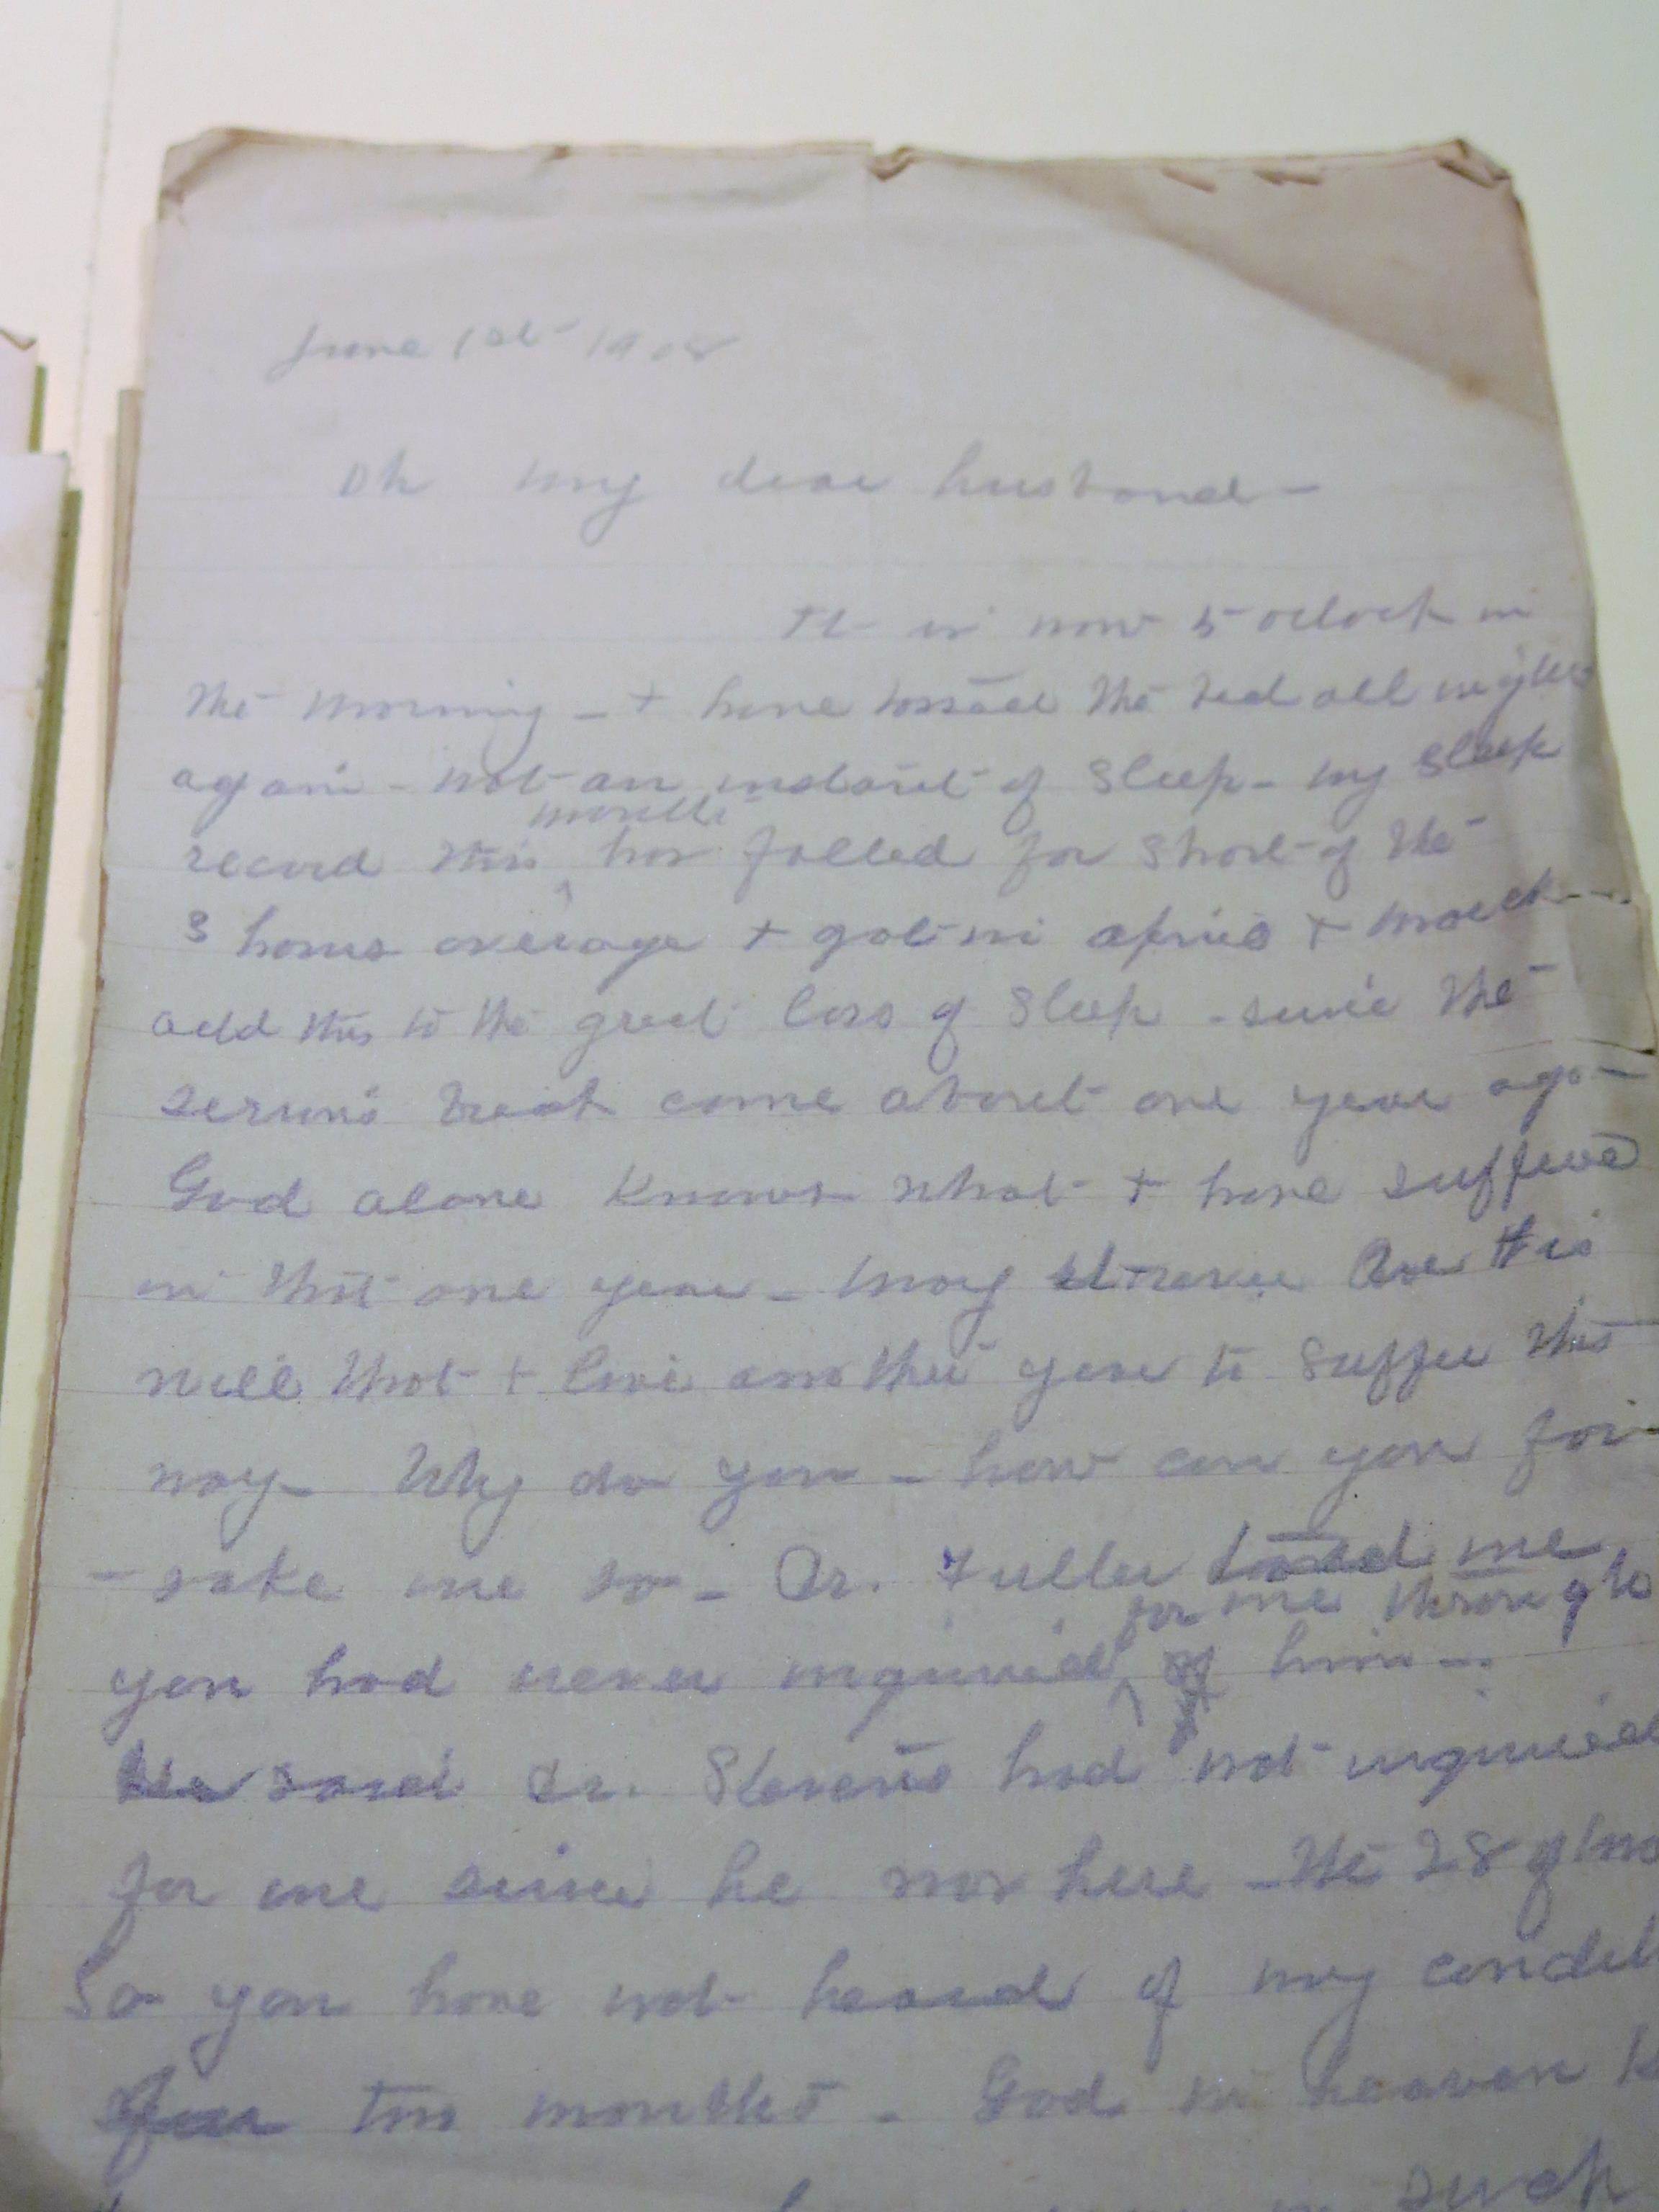 June 1st 1908
Oh my dear husband -
It is now 5 oclock in
the morning - I have tossed the bed all night
again - not an instant of sleep - my sleep
record this month has falled far short of the
3 hours average I got in April & March -
add this to the great loss of sleep - since the
serious break came about one year ago -
God alone knows what I have suffered
in that one year - may it never be His
will that I live another year to suffer this
way - Why do you - how can you for
- sake me so - Dr. Fuller told me
you had never inquired for me through him -
He said Dr. Stevens had not inquired
for me since he was here - the 28 of
So you have not heard of my
for two months - God in heaven
such